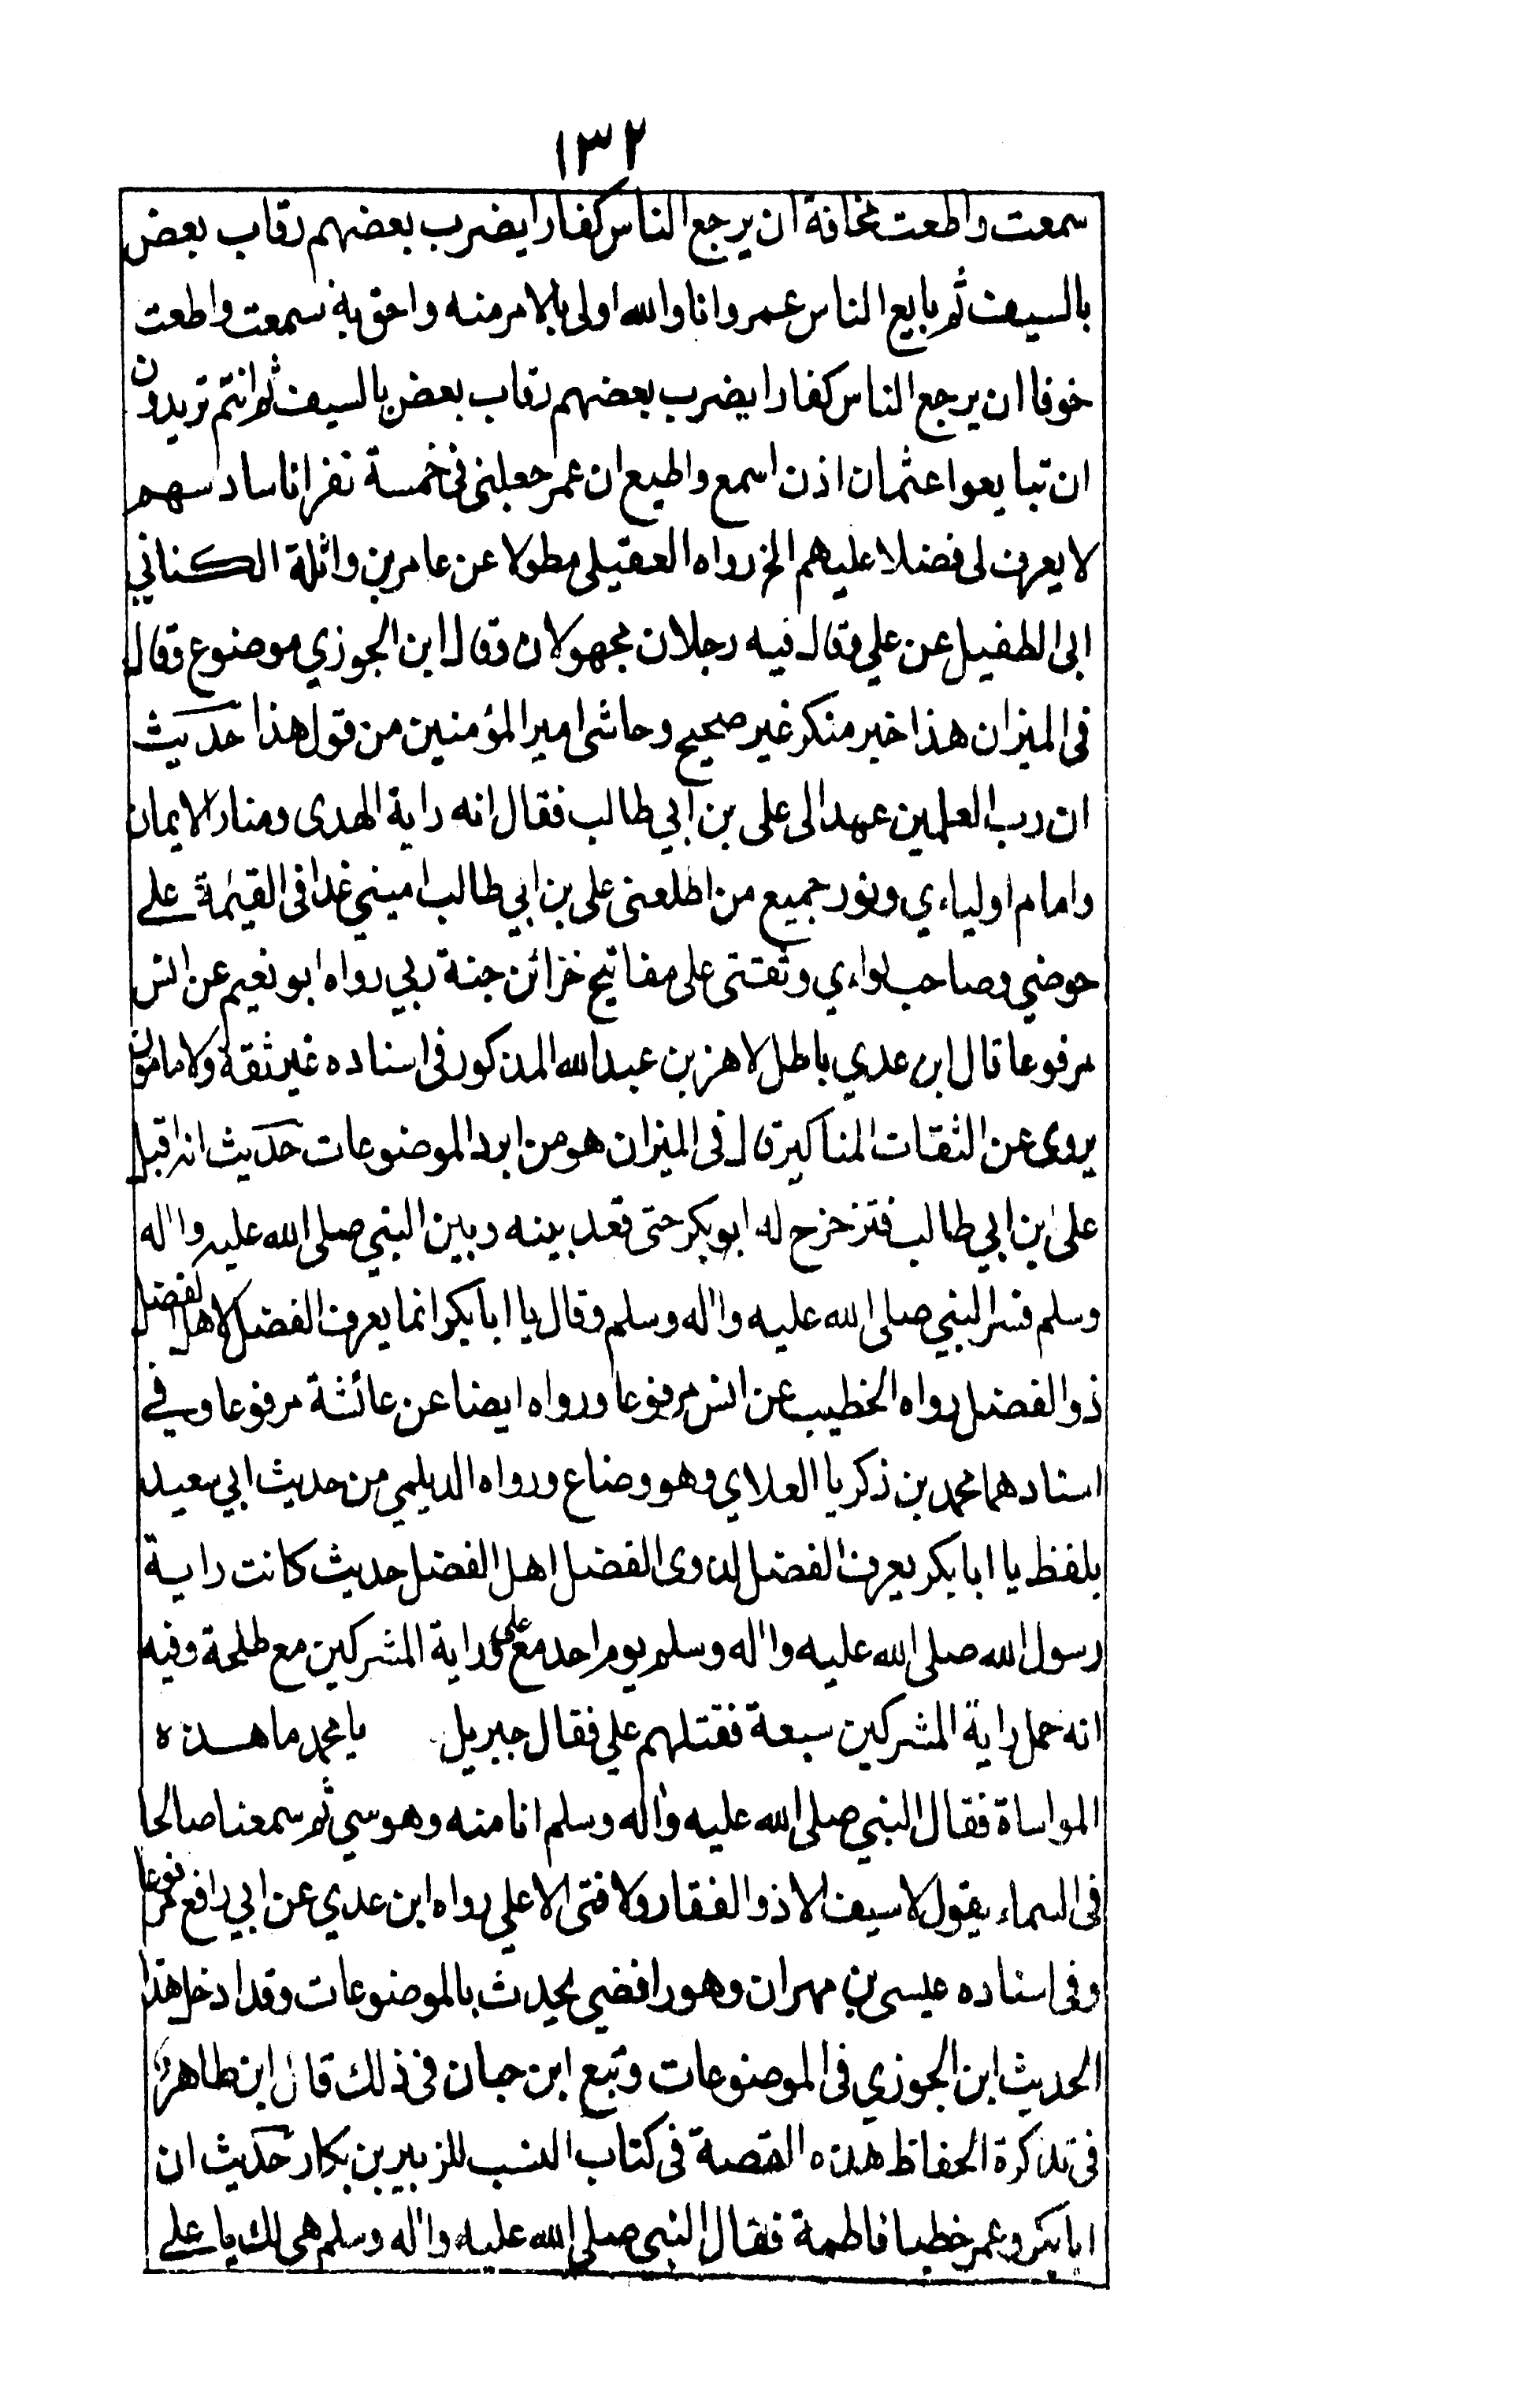 ١٣٢
سمعت واطعت مخافة ان يرجع الناس كفارا يضرب بعضهم رقاب بعض
بالسيف ثم بايع الناس عمر وانا والله اولى بالامر منه واحق به سمعت واطعت
خوفا ان يرجع الناس كفارا يضرب بعضهم رقاب بعض بالسيف ثم انتم تريدون
ان تبايعوا عثمان اذن اسمع واطيع ان عمر جعلنى فى خمسة نفر انا سادسهم
لا يعرف لى فضلا عليهم الخ رواه العقيلى مطولا عن عامر بن واثلة الكناني
ابى الطفيل عن علي وقال فيه رجلان مجهولان وقال ابن الجوزي موضوع وقال
فى الميزان هذا خبر منكر غير صحيح وحاشى امير المؤمنين من قول هذا حديث
ان رب العلمين عهد الى على بن ابي طالب فقال انه راية الهدى ومنار الايمان
وامام اولياءي ونور جميع من اطلعنى على بن ابي طالب اميني غدا فى القيمة على
حوضي وصاحب لواءي وثقتى على مفاتيح خزائن جنة ربي رواه ابو نعيم عن انس
مرفوعا قال ابن عدي باطل لاهز بن عبد الله المذكور فى اسناده غير ثقة ولا مامون
يروى عن الثقات المناكير قال فى الميزان هو من ابرد الموضوعات حديث انه اقبل
على بن ابي طالب فتزحزح له ابو بكر حتى قعد بينه وبين النبي صلى الله عليه واله
وسلم فسر النبي صلى الله عليه واله وسلم وقال يا ابا بكر انما يعرف الفضل لاهل الفضل
ذو الفضل رواه الخطيب عن انس مرفوعا ورواه ايضا عن عائشة مرفوعا وفي
اسنادهما محمد بن زكريا العلاي وهو وضاع ورواه الديلمي من حديث ابي سعيد
بلفظ يا ابا بكر يعرف الفضل لذوى الفضل اهل الفضل حديث كانت راية
رسول الله صلى الله عليه واله وسلم يوم احد مع على وراية المشركين مع طلحة وفيه
انه حمل راية المشركين سبعة فقتلهم علي فقال جبريل يا محمد ما هذه
المواساة فقال النبي صلى الله عليه واله وسلم انا منه وهو مني ثم سمعنا صائحا
فى السماء يقول لا سيف الا ذو الفقار ولا فتى الا علي رواه ابن عدي عن ابي رافع مرفوعا
وفى اسناده عيسى بن مهران وهو رافضي يحدث بالموضوعات وقد ادخل هذا
الحديث ابن الجوزي فى الموضوعات وتبع ابن حبان فى ذلك قال ابن طاهر
فى تذكرة الحفاظ هذه القصة فى كتاب النسب للزبير بن بكار حديث ان
ابا بكر وعمر خطبا فاطمة فقال النبى صلى الله عليه واله وسلم هى لك يا على